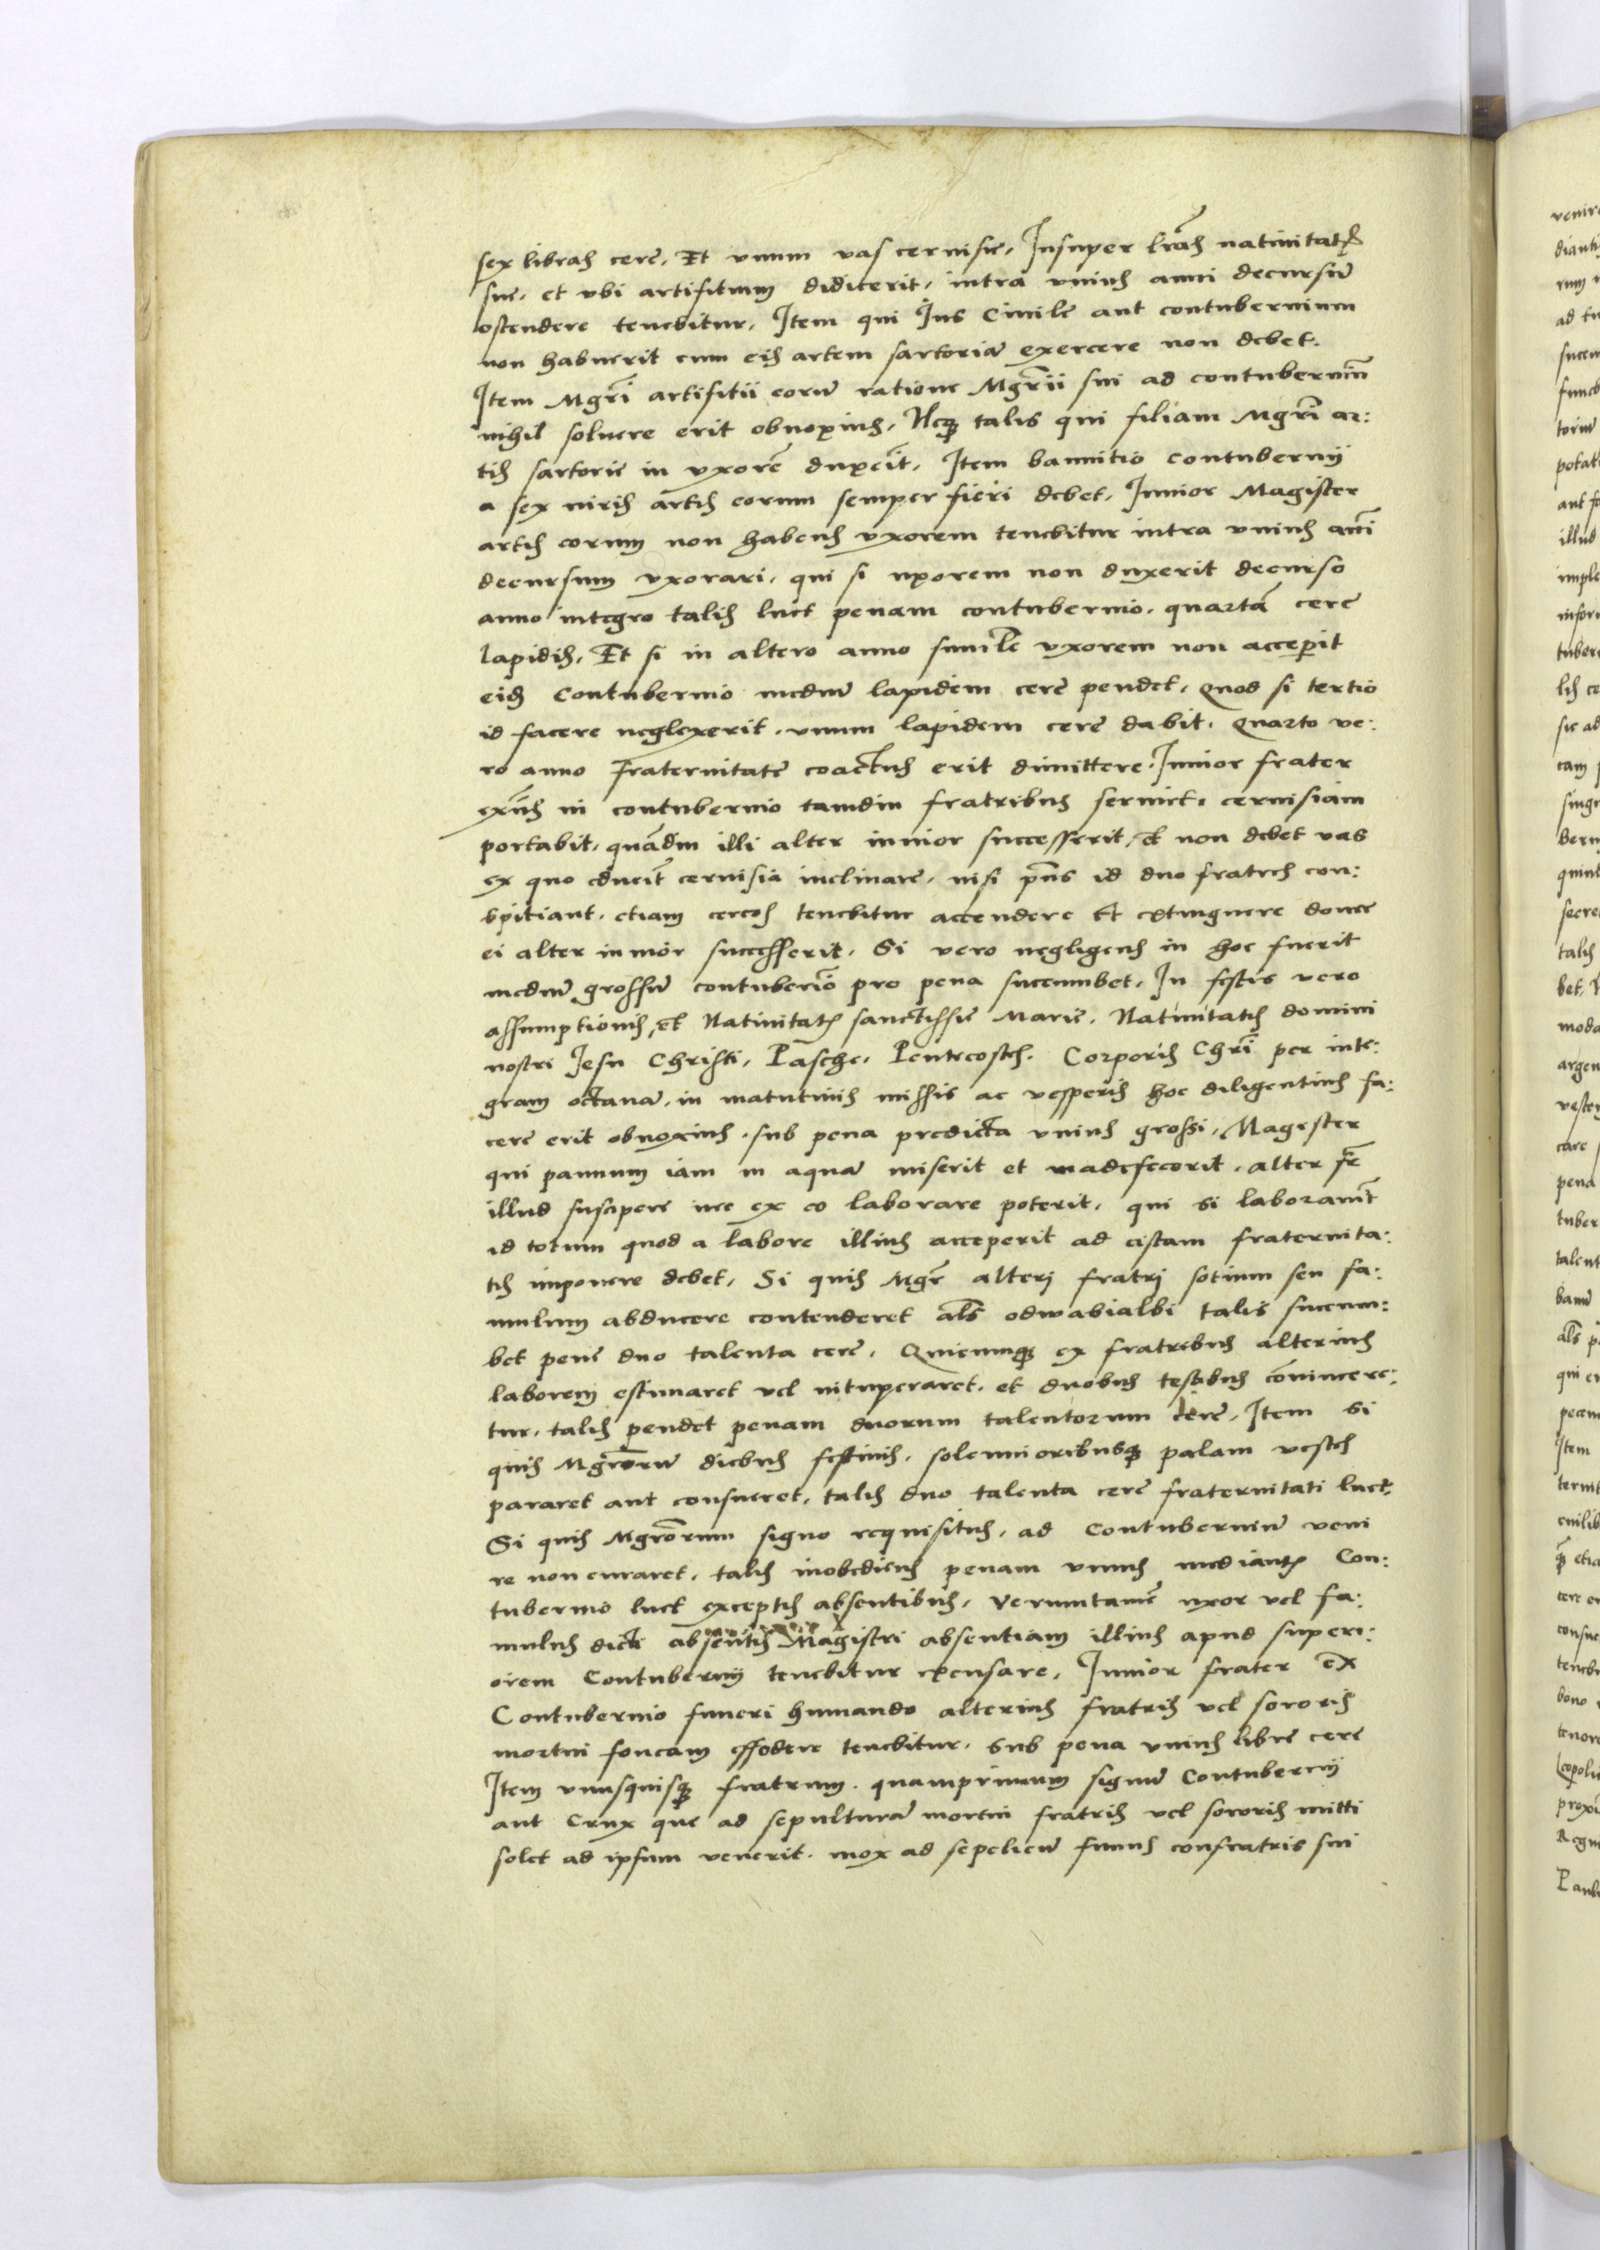 sex libras cere, Et unum vas cervisie, Insuper lrãs nativitatis
sue, et ubi artifitium didicerit, intra unius anni decursũ
ostendere tenebitur, Item qui Ius Civile aut contubernium
non habuerit cum eis artem sartoriã exercere non debet.
Item Mgrĩ artifitii eorũ ratione Mgrĩi sui ad contuberniũ
nihil solvere erit obnoxius, Neq₃ talis qui filiam Mgrĩ ar:
tis sartorie in uxorẽ duxerit, Item bannitio Contubernij
a sex viris artis eorum semper fieri debet, Iunior Magister
artis eorum non habens uxorem tenebitur intra unius anni
decursum uxorari, qui si uxorem non duxerit decurso
anno integro talis luet penam contubernio, quartã cere
lapidis, Et si in altero anno simile uxorem non acceperit
eidẽ Contubernio mediũ lapidem cere pendet, Quod si tertio
id facere neglexerit, unum lapidem cere dabit, Quarto ve:
ro anno Fraternitatẽ coactus erit dimittere. Iunior frater
exñs in contubernio tamdiu fratribus serviet, cervisiam
portabit, quãdiu illi alter iunior successerit, et non debet vas
ex quo educit cervisiã inclinare, nisi prius id duo fratres con:
spitiant, etiam cereos tenebitur accendere Et extinguere donec
ei alter iunior successerit. Si vero negligens in hoc fuerit
mediũ grossũ contubernio pro pena succumbet, In festis vero
assumptionis, et Nativitatis sanctissie Marie, Nativitatis domini
nostri Iesu Christi, Pasche, Pentecostes, Corporis Chrĩ per inte:
gram octavã, in matutinis missis ac vesperis hoc diligentius fa:
cere erit obnoxius, sub pena predicta unius grossi, Magister
qui pannum iam in aquã miserit et madefecerit, alter fr̃
illud suscipere nec ex eo laborare poterit, qui si laboraverit
id totum quod a labore illius acceperit ad cistam fraternita:
tis imponere debet, Si quis Mgr̃ alteri fratri sotium seu fa:
mulum abducere contenderet als̃ odwabialbi talis succum:
bet pene duo talenta cere, Quicumq₃ ex fratribus alterius
laborem estimaret vel vituperaret, et duobus testibus cõvincere:
tur, talis pendet penam duorum talentorum cere, Item si
quis Mgrõrũ diebus festivis, solemnioribusq₃ palam vestes
pararet aut consueret, talis duo talenta cere fraternitati luet,
Si quis Mgrõrum signo requisitus, ad Contuberniũ veni
re non curaret, talis inobediens penam unius mediantis Con:
tubernio luet exceptis absentibus, Verumtamẽ uxor vel fa:
mulus dicti absentis Magistri absentiam illius apud superi:
orem Contubernij tenebitur excusare, Iunior frater ex
Contubernio funeri humando alterius fratris vel sororis
mortui foveam effodere tenebitur, sub pena unius libre cere
Item unusquisq₃ fratrum, quamprimum signũ Contubernij
aut Crux que ad sepulturã mortui fratris vel sororis mitti
solet ad ipsum venerit, mox ad sepeliendũ funus confratris sui